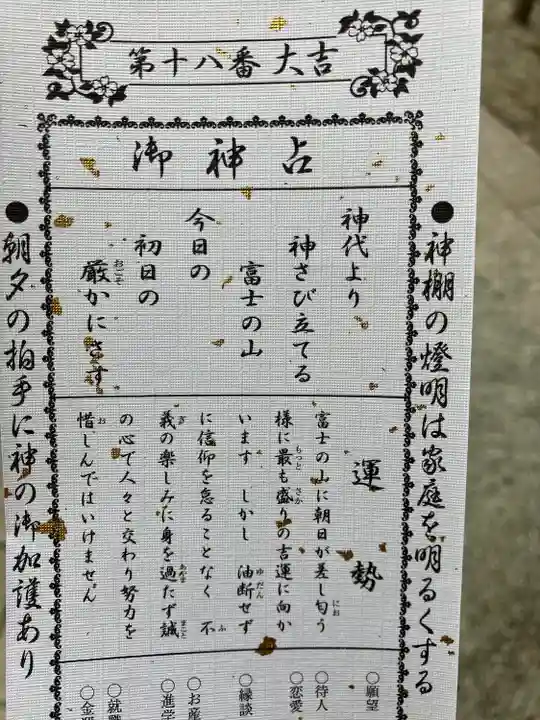 第十八番 大吉
御神占
●神棚の燈明は家庭を明るくする
神代より
神さび立てる
富士の山
今日の
初日の
厳かにさす
おごそ
運勢
富士の山に朝日が差し匂う
にお
様に最も盛りの吉運に向か
もっと さか
います しかし 油断せず
ゆだん
に信仰を怠ることなく 不
ふ
義の楽しみに身を過たず誠
ぎ あやま まこと
の心で人々と交わり努力を
惜しんではいけません
お
○願望
○待人
○恋愛
○縁談
○お産
○進学
○就職
○金運
●朝夕の拍手に神の御加護あり